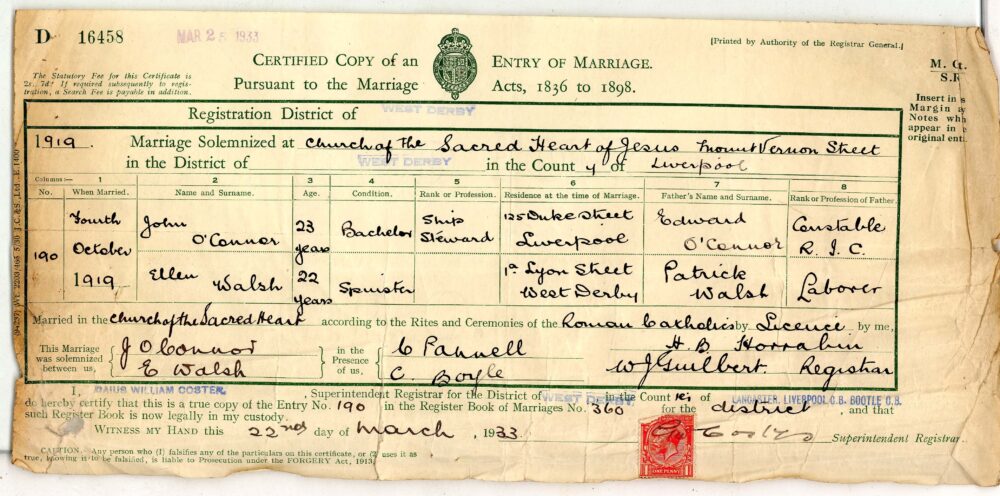 D 16458
MAR 25 1933
[Printed by Authority of the Registrar General.]
CERTIFIED COPY OF AN ENTRY OF MARRIAGE.
Pursuant to the Marriage Acts, 1836 to 1898.
The Statutory Fee for this Certificate is
2s. 7d. If required subsequently to regis-
tration, a Search Fee is payable in addition.
M. C
S.R
Insert in
Margin
Notes wh
appear in
original ent
Registration District of WEST DERBY
1919. Marriage Solemnized at Church of the Sacred Heart of Jesus Mount Vernon Street
in the District of WEST DERBY in the County of Liverpool
Columns:— 1 2 3 4 5 6 7 8
No. When Married. Name and Surname. Age. Condition. Rank or Profession. Residence at the time of Marriage. Father's Name and Surname. Rank or Profession of Father.
190
Fourth October 1919
John O'Connor 23 years Bachelor Ship Steward 125 Duke Street Liverpool Edward O'Connor Constable R.I.C.
Ellen Walsh 22 years Spinster Lyon Street West Derby Patrick Walsh Laborer
Married in the Church of the Sacred Heart according to the Rites and Ceremonies of the Roman Catholics by Licence by me,
This Marriage was solemnized between us, J O'Connor E Walsh in the Presence of us, C Pannell C. Boyle H. B Horrabin W J Guilbert. Registrar
I, DAIUS WILLIAM COSTER, Superintendent Registrar for the District of WEST DERBY in the Count of LANCASTER, LIVERPOOL C.B. BOOTLE C.B.
do hereby certify that this is a true copy of the Entry No. 190 in the Register Book of Marriages No. 360 for the district, and that
such Register Book is now legally in my custody.
WITNESS MY HAND this 22nd day of March, 1933. Superintendent Registrar
CAUTION.—Any person who (1) falsifies any of the particulars on this certificate, or (2) uses it as
true, knowing it to be falsified, is liable to Prosecution under the FORGERY Act, 1913.
ONE PENNY